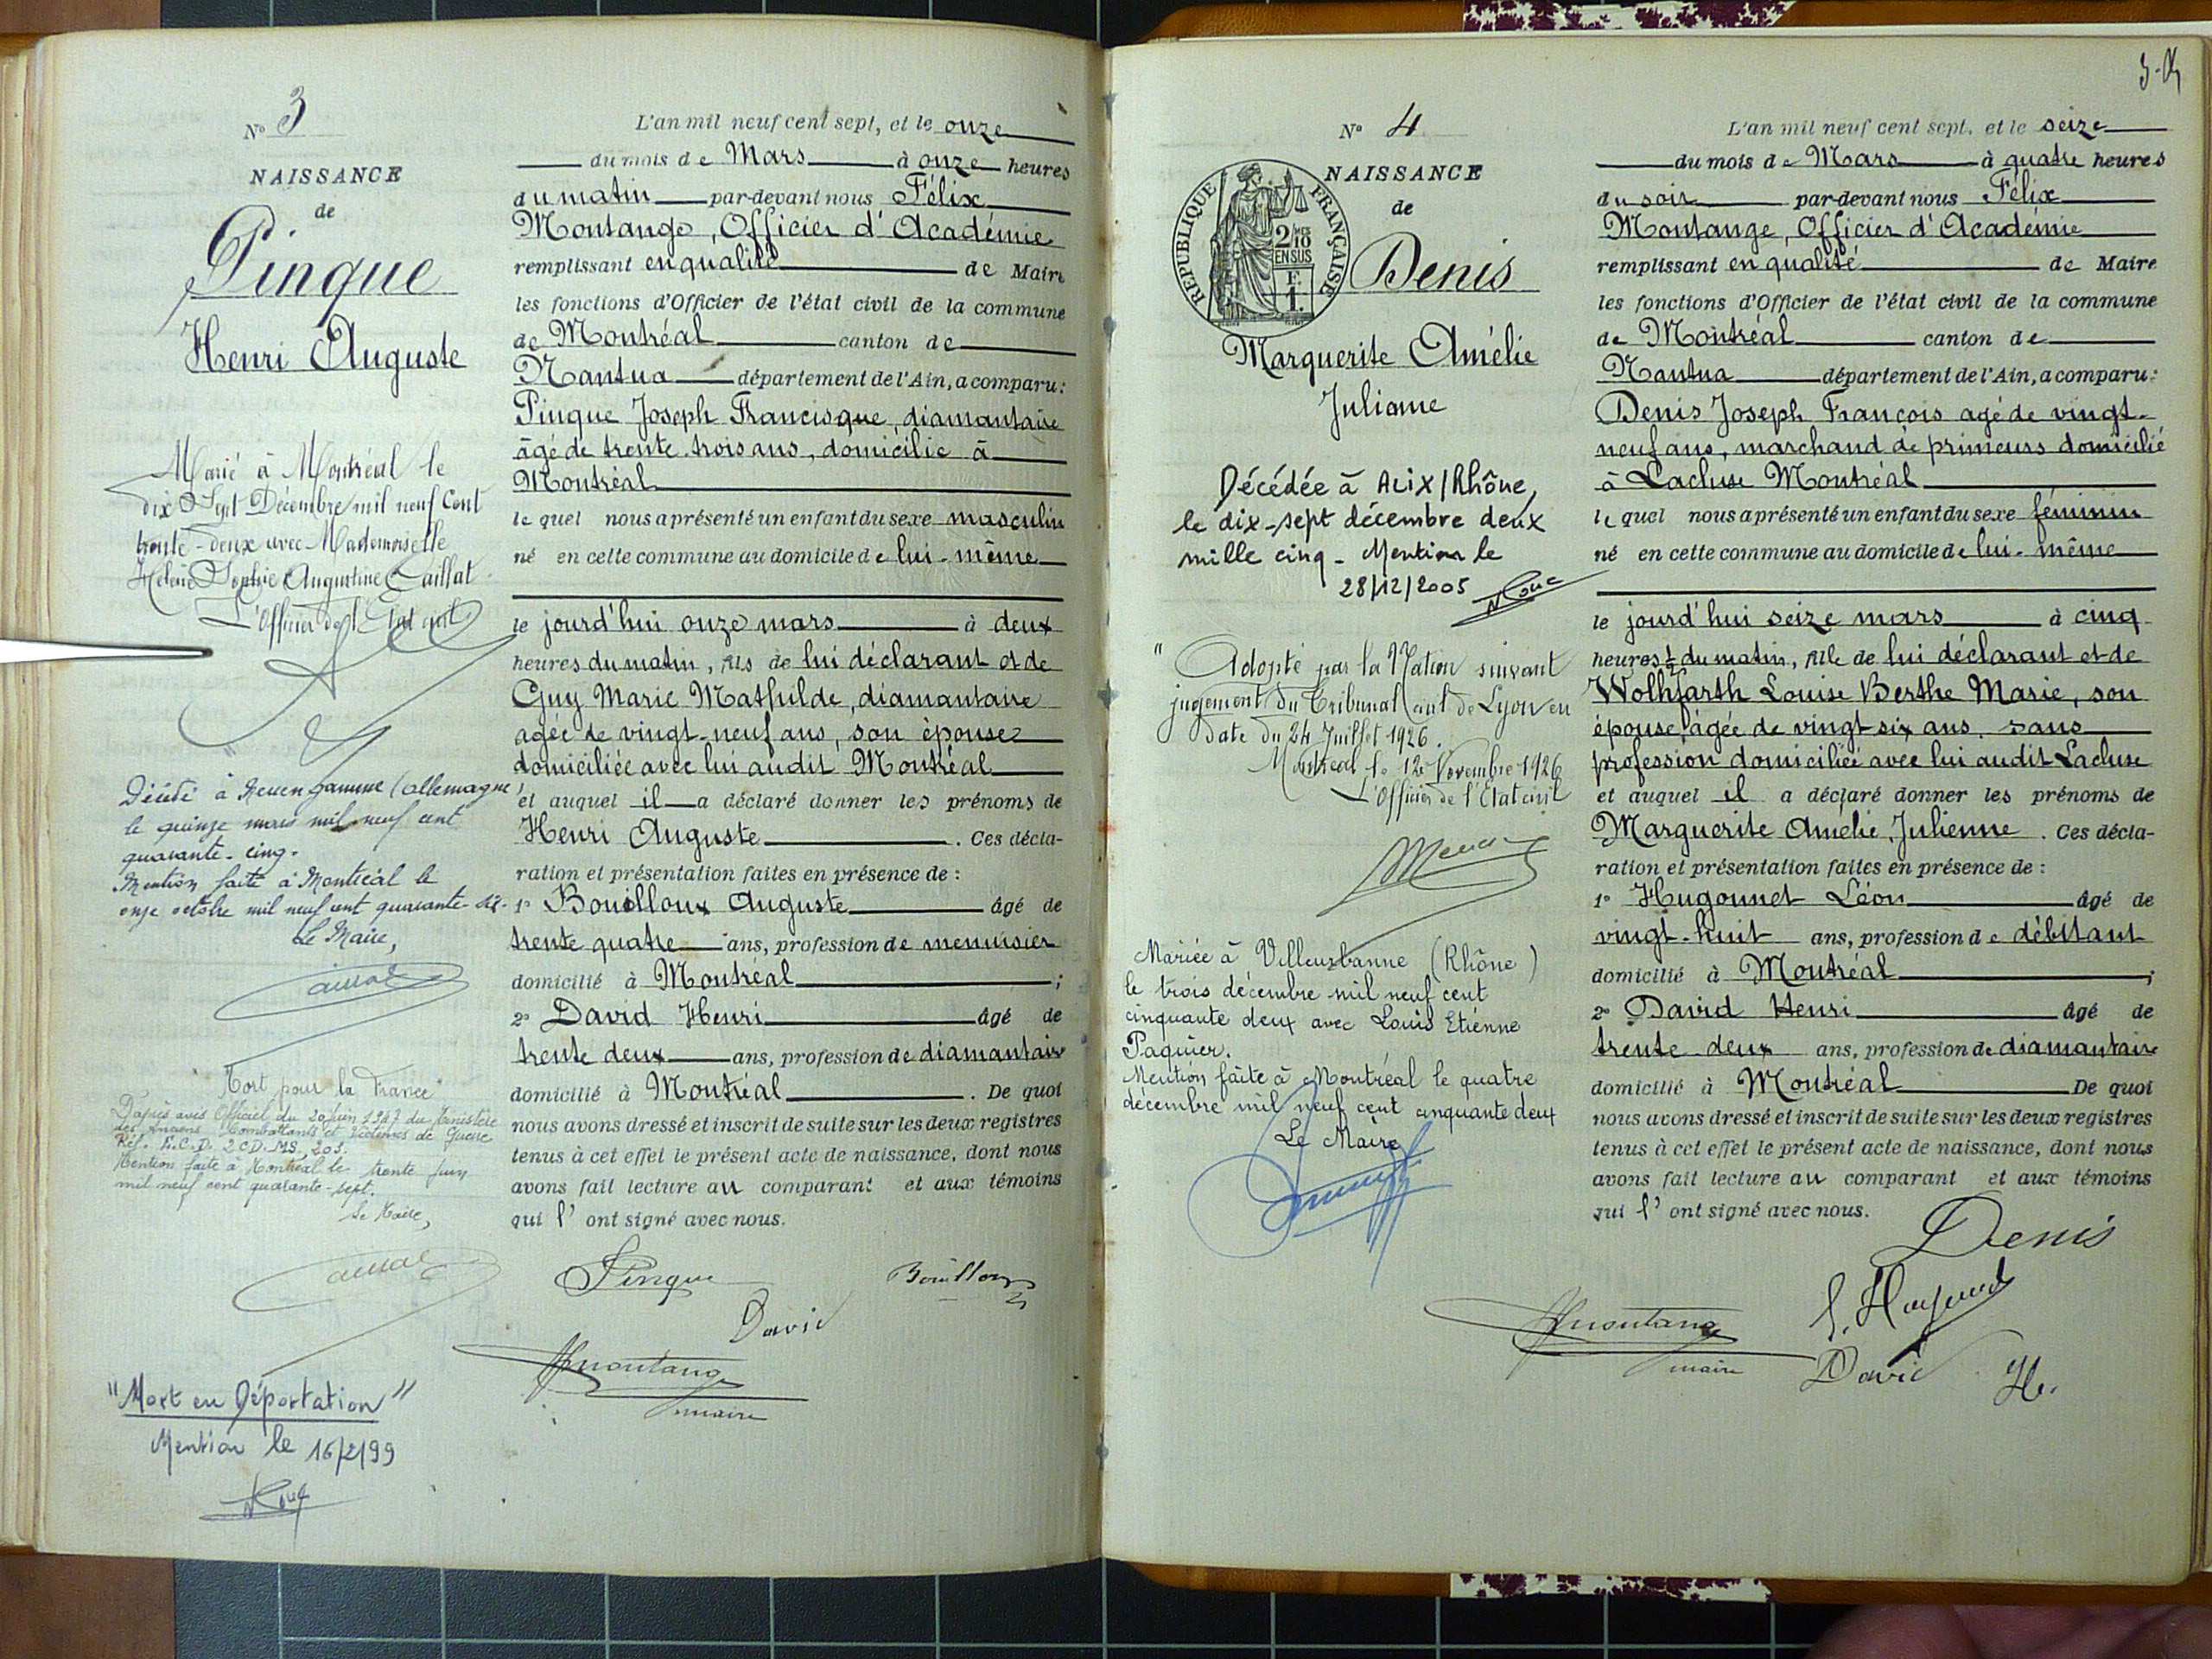 N° 3
NAISSANCE
de
Pinque
Henri Auguste
Marié à Montréal le
dix Sept Décembre mil neuf Cent
trente-deux avec Mademoiselle
Hélène Sophie Augustine Caillat
L'Officier de l'Etat civil
Décédé à Neuengamme (allemagne)
le quinze mars mil neuf cent
quarante-cinq.
Mention faite à Montréal le
onze octobre mil neuf cent quarante-six.
Le Maire,
"Mort pour la France"
D'après avis Officiel du 20 Juin 1947 du Ministère
des Anciens Combattants et Victimes de Guerre
Réf.
Mention faite à Montréal le trente Juin
mil neuf cent quarante-sept.
Le Maire,
"Mort en Déportation"
Mention le 16/2/99
L'an mil neuf cent sept, et le onze
du mois de Mars à onze heures
du matin par-devant nous Félix
Montange, Officier d'Académie
remplissant en qualité de Maire
les fonctions d'Officier de l'état civil de la commune
de Montréal canton de
Nantua département de l'Ain, a comparu:
Pinque Joseph Francisque, diamantaire
âgé de trente-trois ans, domicilié à
Montréal
lequel nous a présenté un enfant du sexe masculin
né en cette commune au domicile de lui-même
le jourd'hui onze mars à deux
heures du matin, fils de lui déclarant et de
Guy Marie Mathilde, diamantaire
agée de vingt-neuf ans, son épouse
domiciliée avec lui audit Montréal
et auquel il a déclaré donner les prénoms de
Henri Auguste. Ces décla-
ration et présentation faites en présence de:
1° Bouilloux Auguste âgé de
trente quatre ans, profession de menuisier
domicilié à Montréal;
2° David Henri âgé de
trente deux ans, profession de diamantaire
domicilié à Montréal. De quoi
nous avons dressé et inscrit de suite sur les deux registres
tenus à cet effet le présent acte de naissance, dont nous
avons fait lecture au comparant et aux témoins
qui l'ont signé avec nous.
Pinque
Bouilloux
David
Montange
maire
N° 4
NAISSANCE
de
REPUBLIQUE FRANÇAISE
2/10
EN SUS
F
1
Denis
Marguerite Amélie
Julienne
Décédée à Alix/Rhône,
le dix-sept décembre deux
mille cinq - Mention le
28/12/2005
"Adopté par la Nation suivant
jugement du Tribunal civil de Lyon en
date du 24 Juillet 1926.
Montréal le 12 Novembre 1926
L'Officier de l'Etat civil
Mariée à Villeurbanne (Rhône)
le trois décembre mil neuf cent
cinquante deux avec Louis Etienne
Paquier.
Mention faite à Montréal le quatre
décembre mil neuf cent cinquante deux
Le Maire
L'an mil neuf cent sept, et le seize
du mois de Mars à quatre heures
du soir par-devant nous Félix
Montange, Officier d'Académie
remplissant en qualité de Maire
les fonctions d'Officier de l'état civil de la commune
de Montréal canton de
Nantua département de l'Ain, a comparu:
Denis Joseph François agé de vingt-
neuf ans, marchand de primeurs domicilié
à Lacluse Montréal
lequel nous a présenté un enfant du sexe féminin
né en cette commune au domicile de lui-même
le jourd'hui seize mars à cinq
heures ½ du matin, fille de lui déclarant et de
Wolhfarth Louise Berthe Marie, son
épouse, âgée de vingt-six ans, sans
profession domiciliée avec lui audit Lacluse
et auquel il a déclaré donner les prénoms de
Marguerite Amélie Julienne. Ces décla-
ration et présentation faites en présence de:
1° Hugonnet Léon âgé de
vingt-huit ans, profession de débitant
domicilié à Montréal;
2° David Henri âgé de
trente deux ans, profession de diamantaire
domicilié à Montréal De quoi
nous avons dressé et inscrit de suite sur les deux registres
tenus à cet effet le présent acte de naissance, dont nous
avons fait lecture au comparant et aux témoins
qui l'ont signé avec nous.
Denis
Montange
maire
David